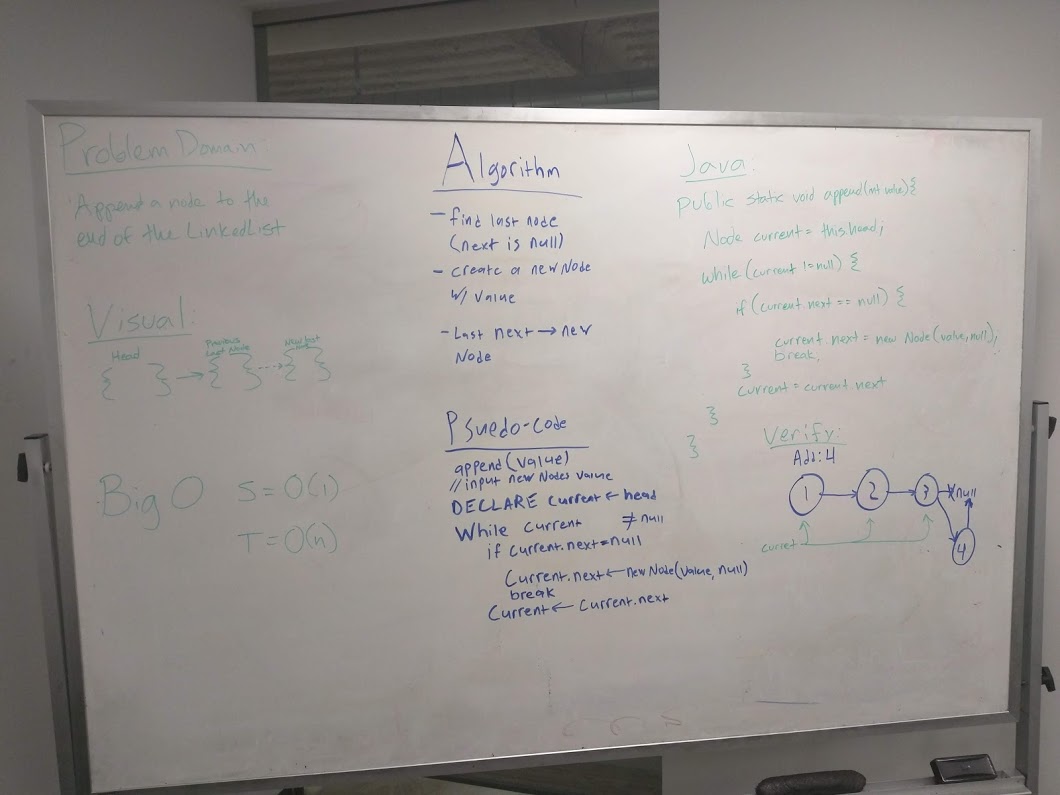 Problem Domain:
Append a node to the
end of the LinkedList
Visual:
Head
Previous
Last Node
New last
{ } → { } ...→ { }
Big O S = O(1)
T = O(n)
Algorithm
- find last node
(next is null)
- create a new Node
w/ value
- Last next → new
Node
Psuedo-code
append(value)
// input new Nodes value
DECLARE Current ← head
While Current ≠ null
if Current.next = null
Current.next ← new Node(value, null)
break
Current ← Current.next
Java:
public static void append(int value) {
Node current = this.head;
while (current != null) {
if (current.next == null) {
current.next = new Node(value, null);
break;
}
current = current.next
}
}
Verify:
Add: 4
1 → 2 → 3 → null
4
curret